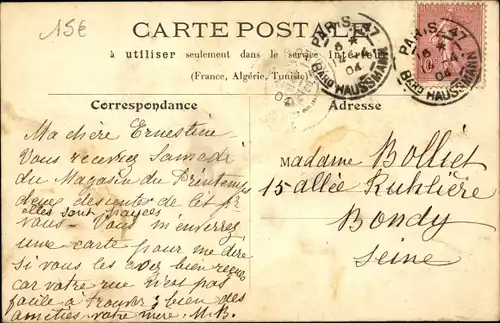 15€
CARTE POSTALE
à utiliser seulement dans le service intérieur
(France, Algérie, Tunisie)
PARIS 47
6 4
04
BARD HAUSSMANN
PARIS 47
6 4
04
BARD HAUSSMANN
Correspondance
Ma chère Ernestine
Vous recevrez Samedi
du Magasin du Printemps
deux descentes de lit pr
elles sont payées
vous - Vous m'enverrez
une carte pour me dire
si vous les avez bien reçues
car votre rue n'est pas
facile à trouver; bien des
amitiés votre mère. M.B.
Adresse
Madame Bolliet
15 allée Ruhlière
Bondy
Seine